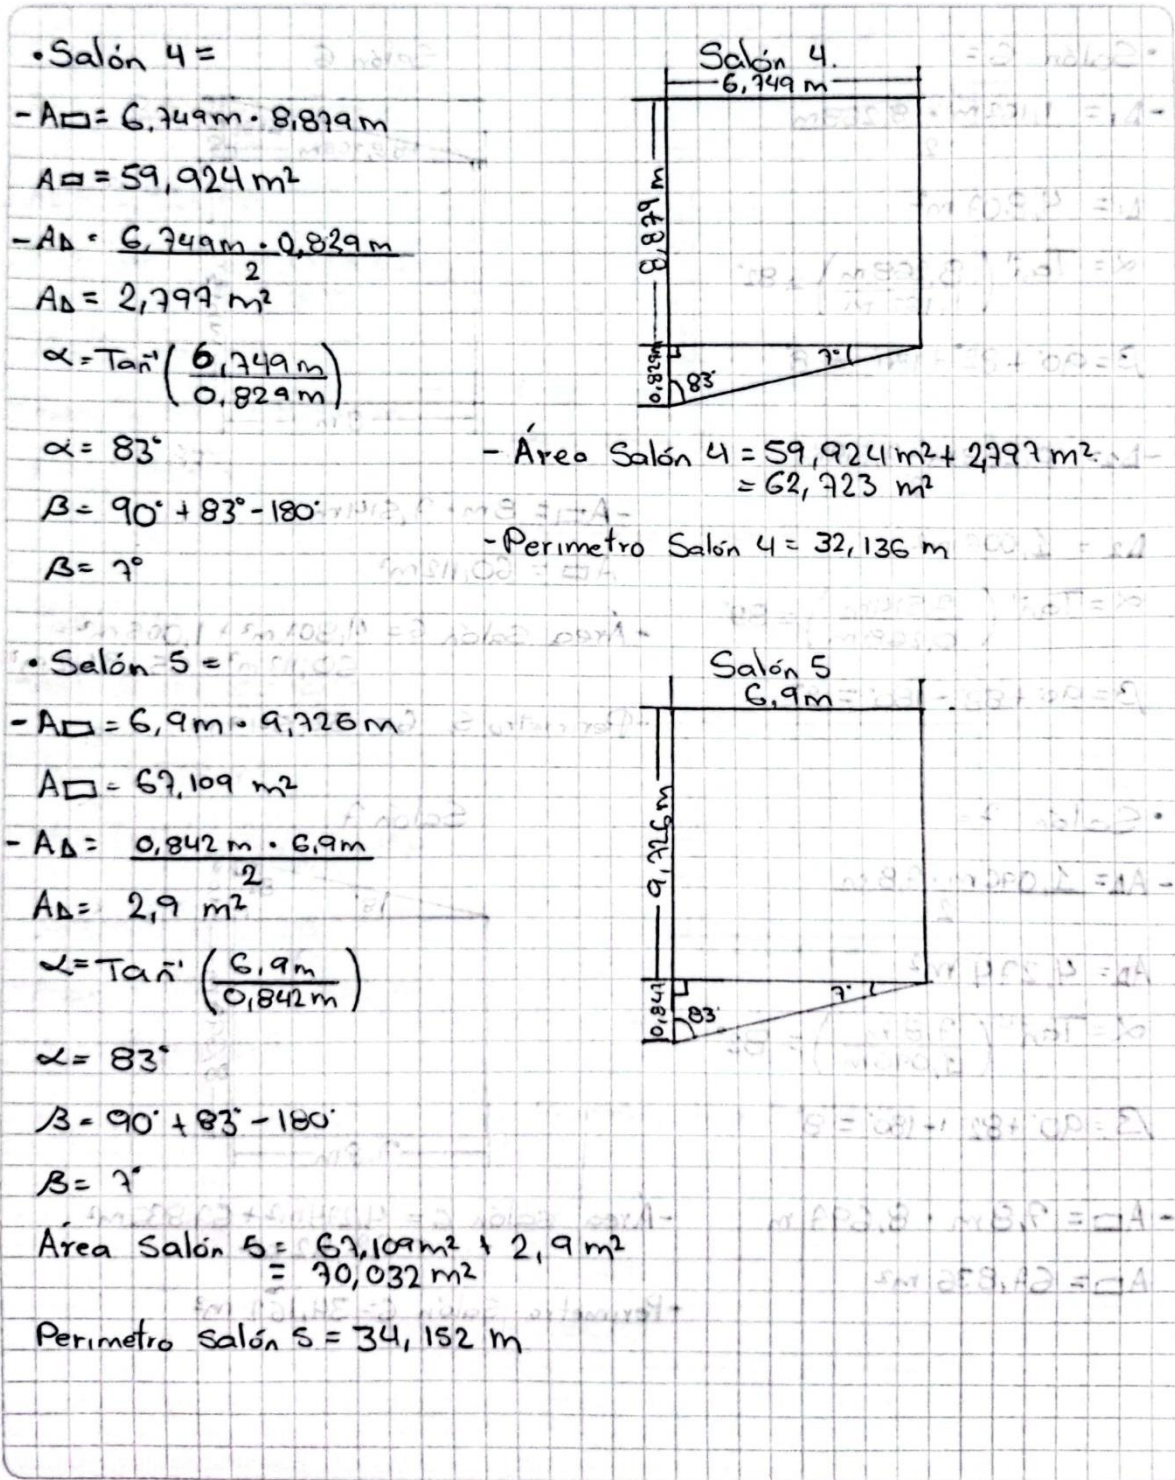 • Salón 4 =
- A▭ = 6,749m · 8,879m
A▭ = 59,924 m²
- A△ · 6,749m · 0,829m
2
A△ = 2,797 m²
α = Tan⁻¹ ( 6,749m
0,829m )
α = 83°
β = 90° + 83° - 180°
β = 7°
Salón 4.
6,749 m
8,879 m
0,829m
83°
7°
- Área Salón 4 = 59,924 m² + 2,797 m².
= 62,723 m²
- Perimetro Salón 4 = 32,136 m
• Salón 5 =
- A▭ = 6,9m · 9,726m
A▭ = 67,109 m²
- A△ = 0,842 m · 6,9m
2
A△ = 2,9 m²
α = Tan⁻¹ ( 6,9m
0,842m )
α = 83°
β = 90° + 83° - 180°
β = 7°
Área Salón 5 = 67,109m² + 2,9 m²
= 70,032 m²
Perimetro Salón 5 = 34,152 m
Salón 5
6,9m
9,726m
83°
7°